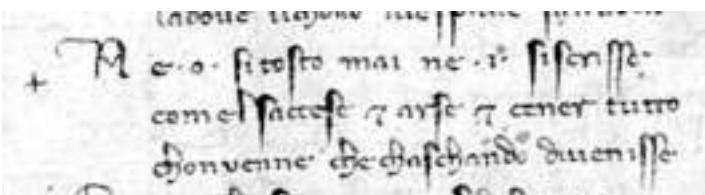 Ne .o. si tosto mai ne .i. si scrisse.
comel saccese ⁊ arse ⁊ cener tutto
chonvenne che chaschando divenisse